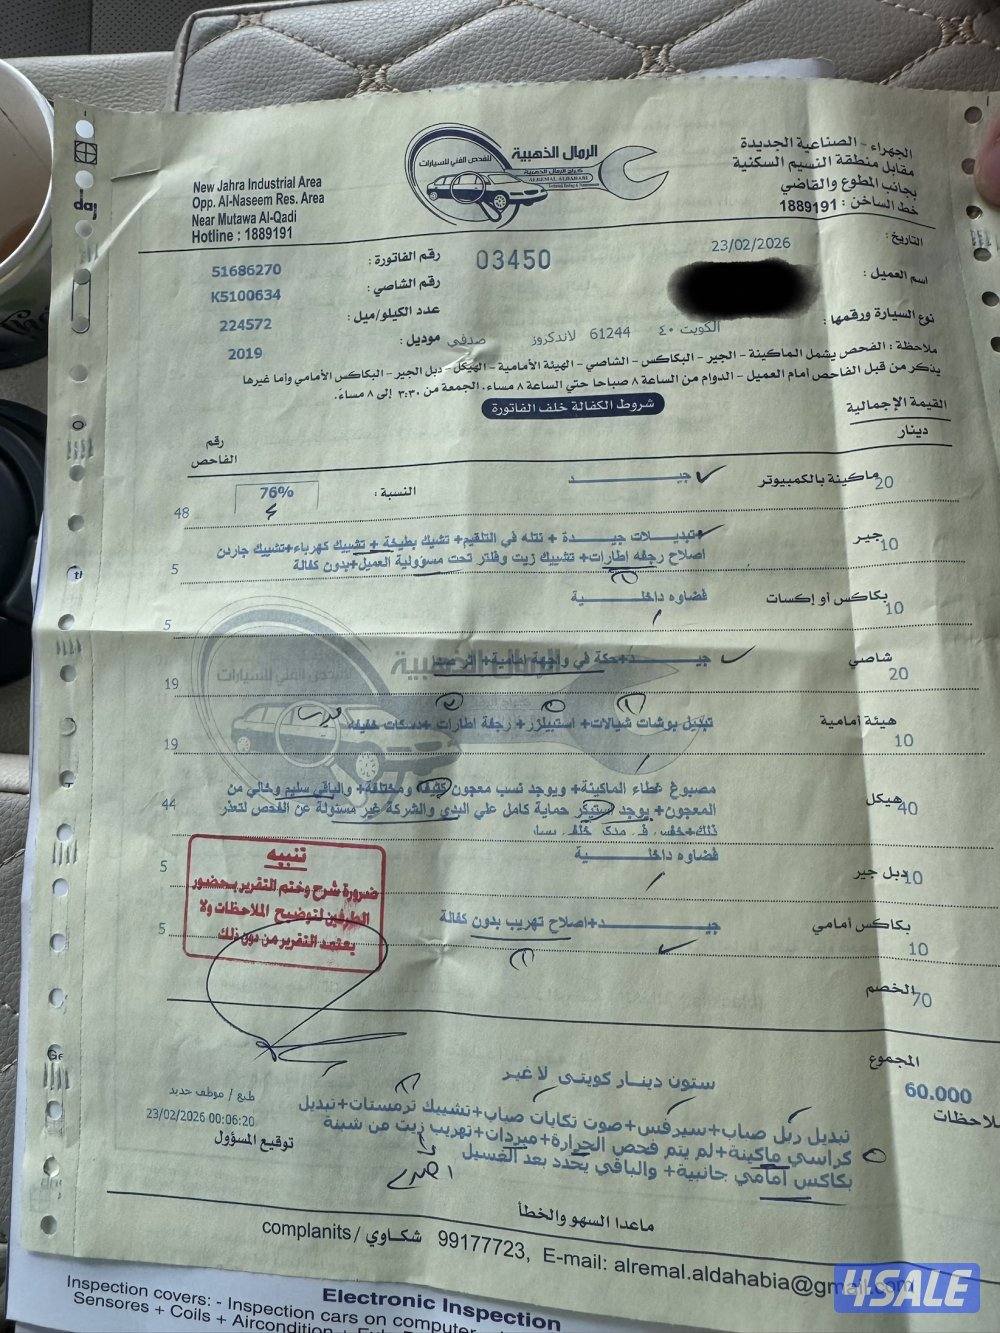 الجهراء - الصناعية الجديدة
مقابل منطقة النسيم السكنية
بجانب المطوع والقاضي
خط الساخن : 1889191
الرمال الذهبية
للفحص الفني للسيارات
كراج الرمال الذهبية
ALREMAL ALDAHABI
New Jahra Industrial Area
Opp. Al-Naseem Res. Area
Near Mutawa Al-Qadi
Hotline : 1889191
day
التاريخ : 23/02/2026
03450
رقم الفاتورة : 51686270
اسم العميل :
رقم الشاصي : K5100634
نوع السيارة ورقمها : الكويت ٤٠ 61244 لاندكروز صدفي
عدد الكيلو/ميل : 224572
موديل : 2019
ملاحظة : الفحص يشمل الماكينة - الجير - البكاكس - الشاصي - الهيئة الأمامية - الهيكل - دبل الجير - البكاكس الأمامي وأما غيرها
يذكر من قبل الفاحص أمام العميل - الدوام من الساعة ٨ صباحا حتي الساعة ٨ مساء. الجمعة من ٣:٣٠ إلى ٨ مساءً.
شروط الكفالة خلف الفاتورة
القيمة الإجمالية
دينار
رقم
الفاحص
ماكينة بالكمبيوتر 20 جيــــــد النسبة : 76% 48
جير 10 تبديـلات جيـدة + نتله في التلقيم+ تشيك بطيخة + تشييك كهرباء+تشييك جاردن
اصلاح رجفه اطارات+ تشييك زيت وفلتر تحت مسؤولية العميل+بدون كفالة 5
بكاكس أو إكسات 10 فضاوه داخلـــية 5
شاصي 20 جيــــد+حكة في واجهة امامية+ 19
هيئة أمامية 10 تبديل بوشات شيالات+ استبيلزر+ رجفة اطارات +دسكات خفيفه 19
هيكل 40 مصبوغ غطاء الماكينة+ ويوجد نسب معجون كثيفة ومختلفة+ والباقي سليم وخالي من
المعجون+ يوجد استيكر حماية كامل علي البدي والشركة غير مسئولة عن الفحص لتعذر
ذلك+ 44
دبل جير 10 فضاوه داخلـــية 5
بكاكس أمامي 10 جيــــد+اصلاح تهريب بدون كفالة 5
تنبيه
ضرورة شرح وختم التقرير بحضور
الطرفين لتوضيح الملاحظات ولا
يعتمد التقرير من دون ذلك
الخصم 70
المجموع 60.000
ستون دينار كويتي لا غير
تبديل ربل صباب+سيرفس+ صوت تكايات صباب+تشييك ترمستات+تبديل
كراسي ماكينة+لم يتم فحص الحرارة+مبردات+تهريب زيت من شبنة
بكاكس امامي جانبية+ والباقي يحدد بعد الغسيل
طبع / موظف جديد
23/02/2026 00:06:20
توقيع المسؤول
ماعدا السهو والخطأ
complanits/ شكاوي 99177723, E-mail: alremal.aldahabia@gmail.com
4SALE
Electronic Inspection
Inspection covers: - Inspection cars on computer
Sensores + Coils + Aircondition +